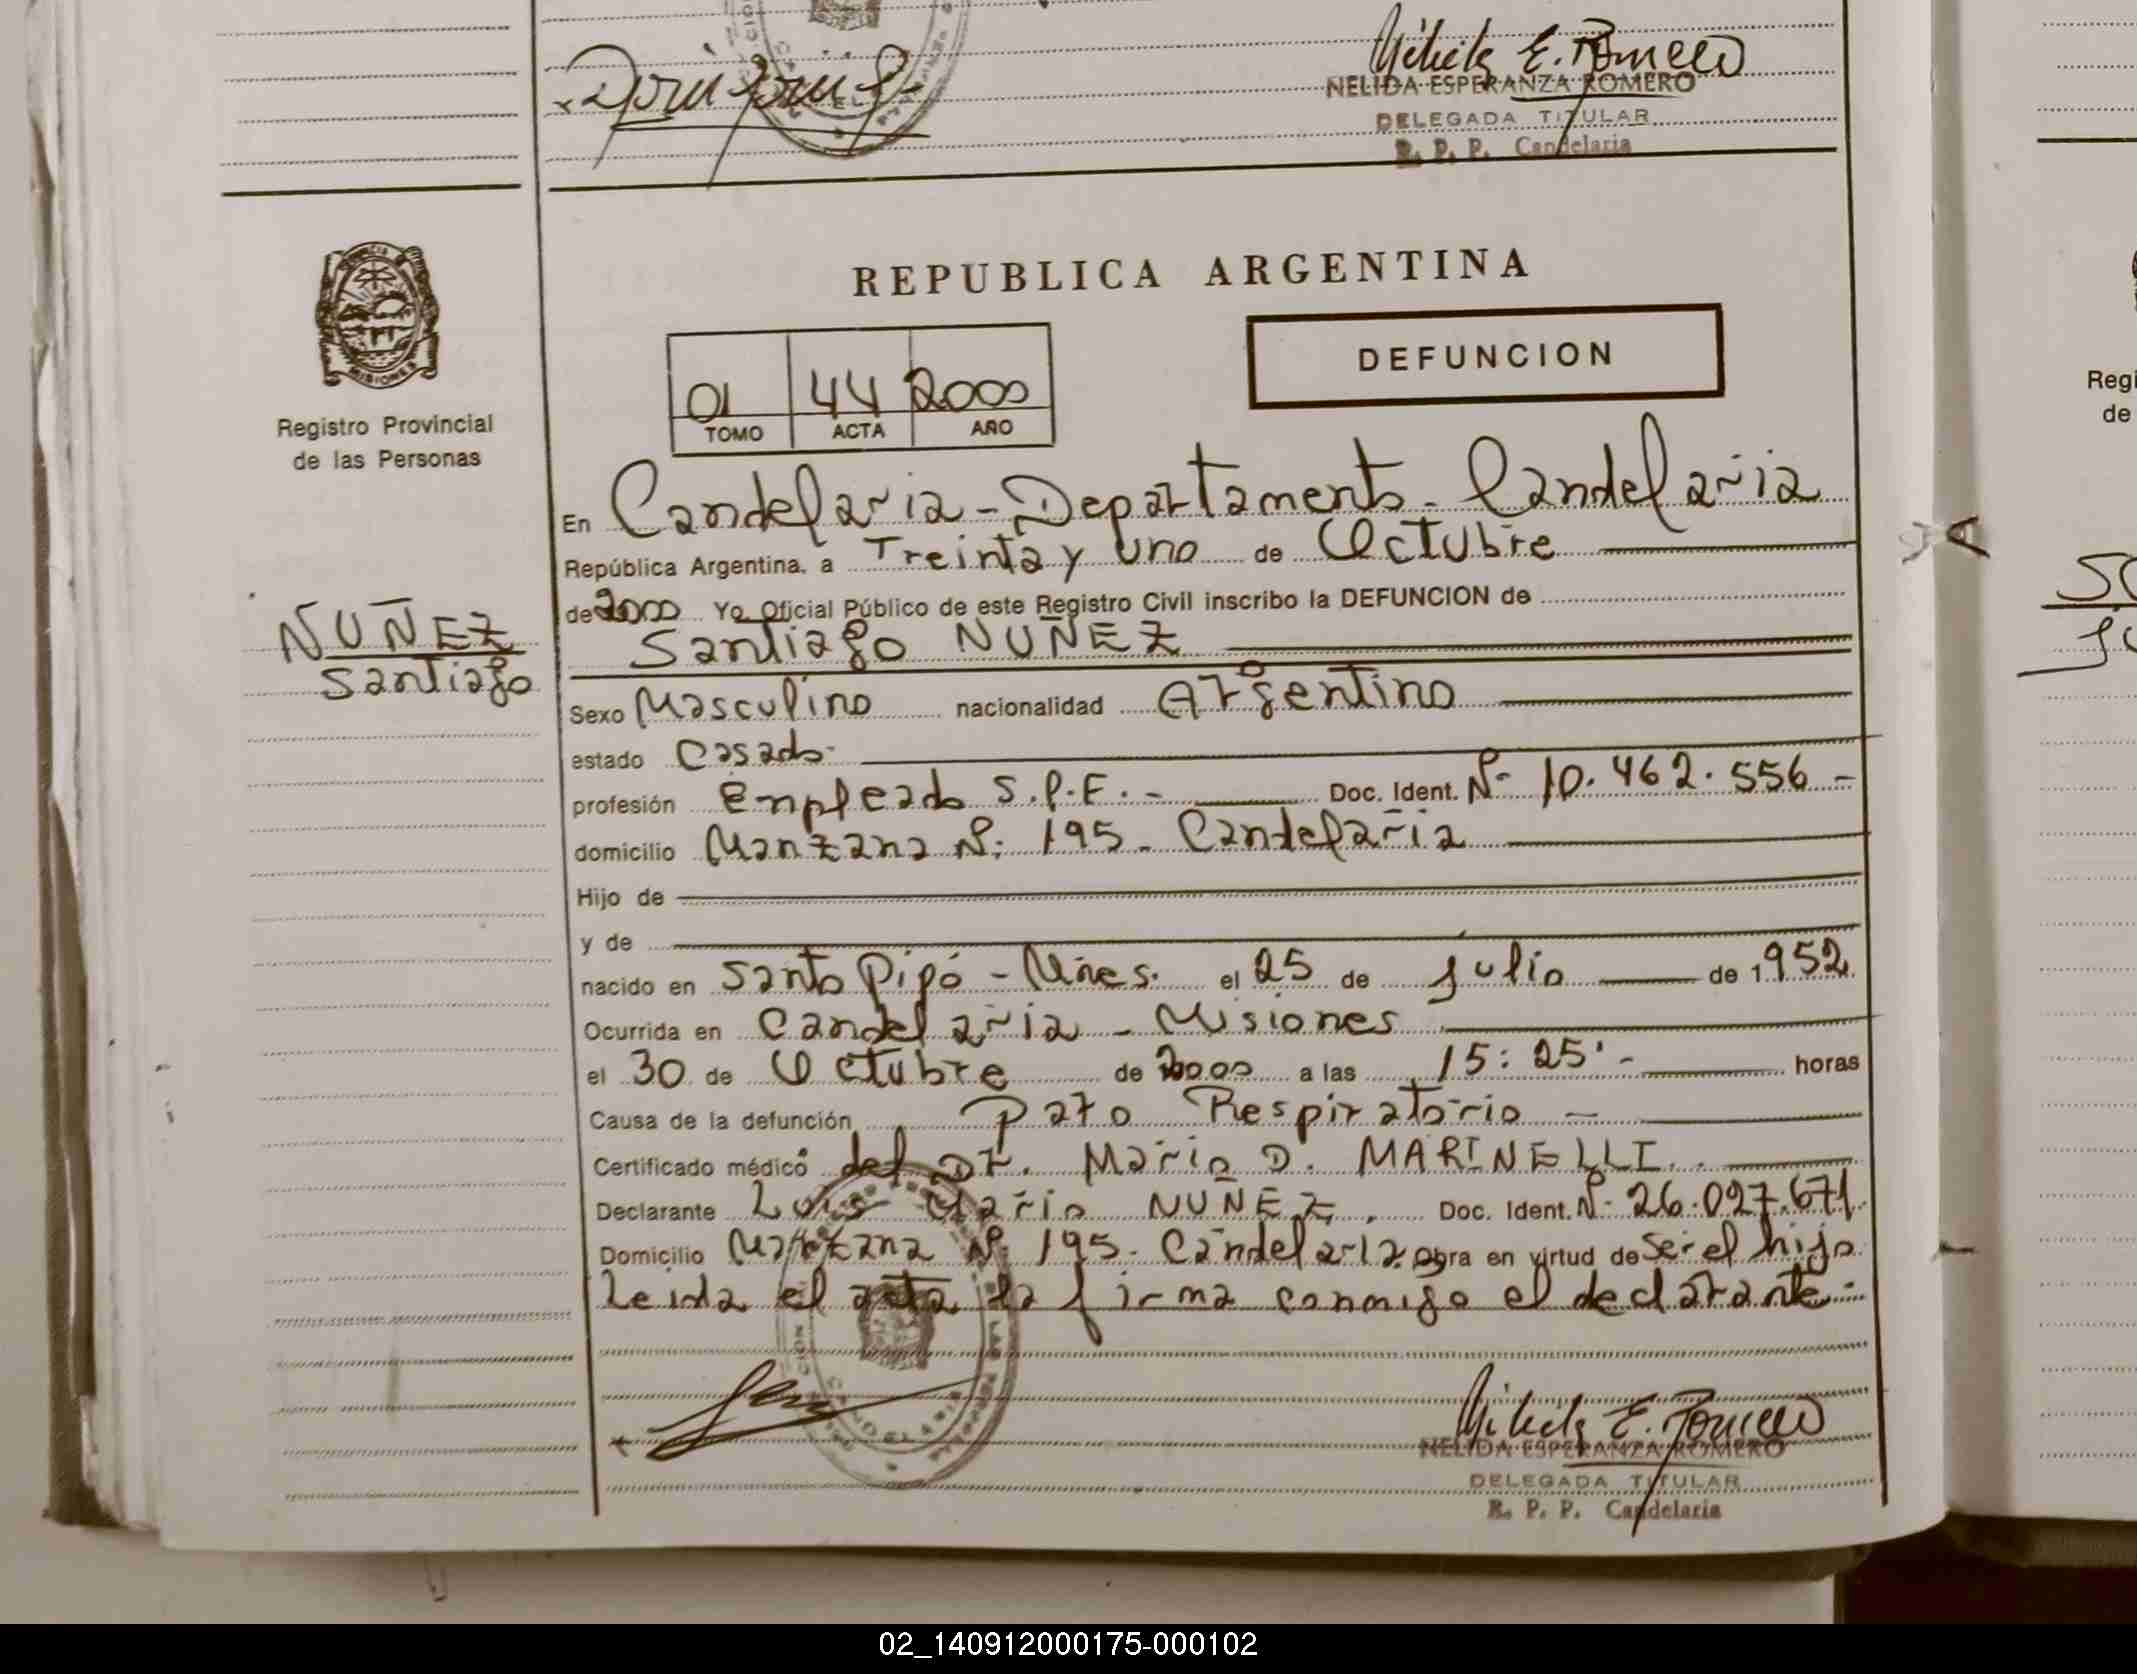 Nélida E. Romero
NELIDA ESPERANZA ROMERO
DELEGADA TITULAR
R. P. P. Candelaria
REPUBLICA ARGENTINA
MISIONES
Registro Provincial
de las Personas
01 44 2000
TOMO ACTA AÑO
DEFUNCION
En Candelaria - Departamento - Candelaria
República Argentina, a Treinta y uno de Octubre
de 2000 Yo Oficial Público de este Registro Civil inscribo la DEFUNCION de
NUÑEZ
Santiago
Santiago NUÑEZ
Sexo Masculino nacionalidad Argentino
estado Casado
profesión Empleado S.P.F. - Doc. Ident. Nº 10.462.556.-
domicilio Manzana Nº 195 - Candelaria
Hijo de
y de
nacido en Santo Pipó - Mnes. el 25 de Julio de 1952
Ocurrida en Candelaria - Misiones
el 30 de Octubre de 2000 a las 15:25'- horas
Causa de la defunción Paro Respiratorio -
Certificado médico del Dr. Mario D. MARINELLI.
Declarante Luis Mario NUÑEZ. Doc. Ident. Nº 26.027.671
Domicilio Manzana Nº 195. Candelaria obra en virtud de ser el hijo
Leida el acta la firma conmigo el declarante-
Nélida E. Romero
NELIDA ESPERANZA ROMERO
DELEGADA TITULAR
R. P. P. Candelaria
Regi
de
02_140912000175-000102